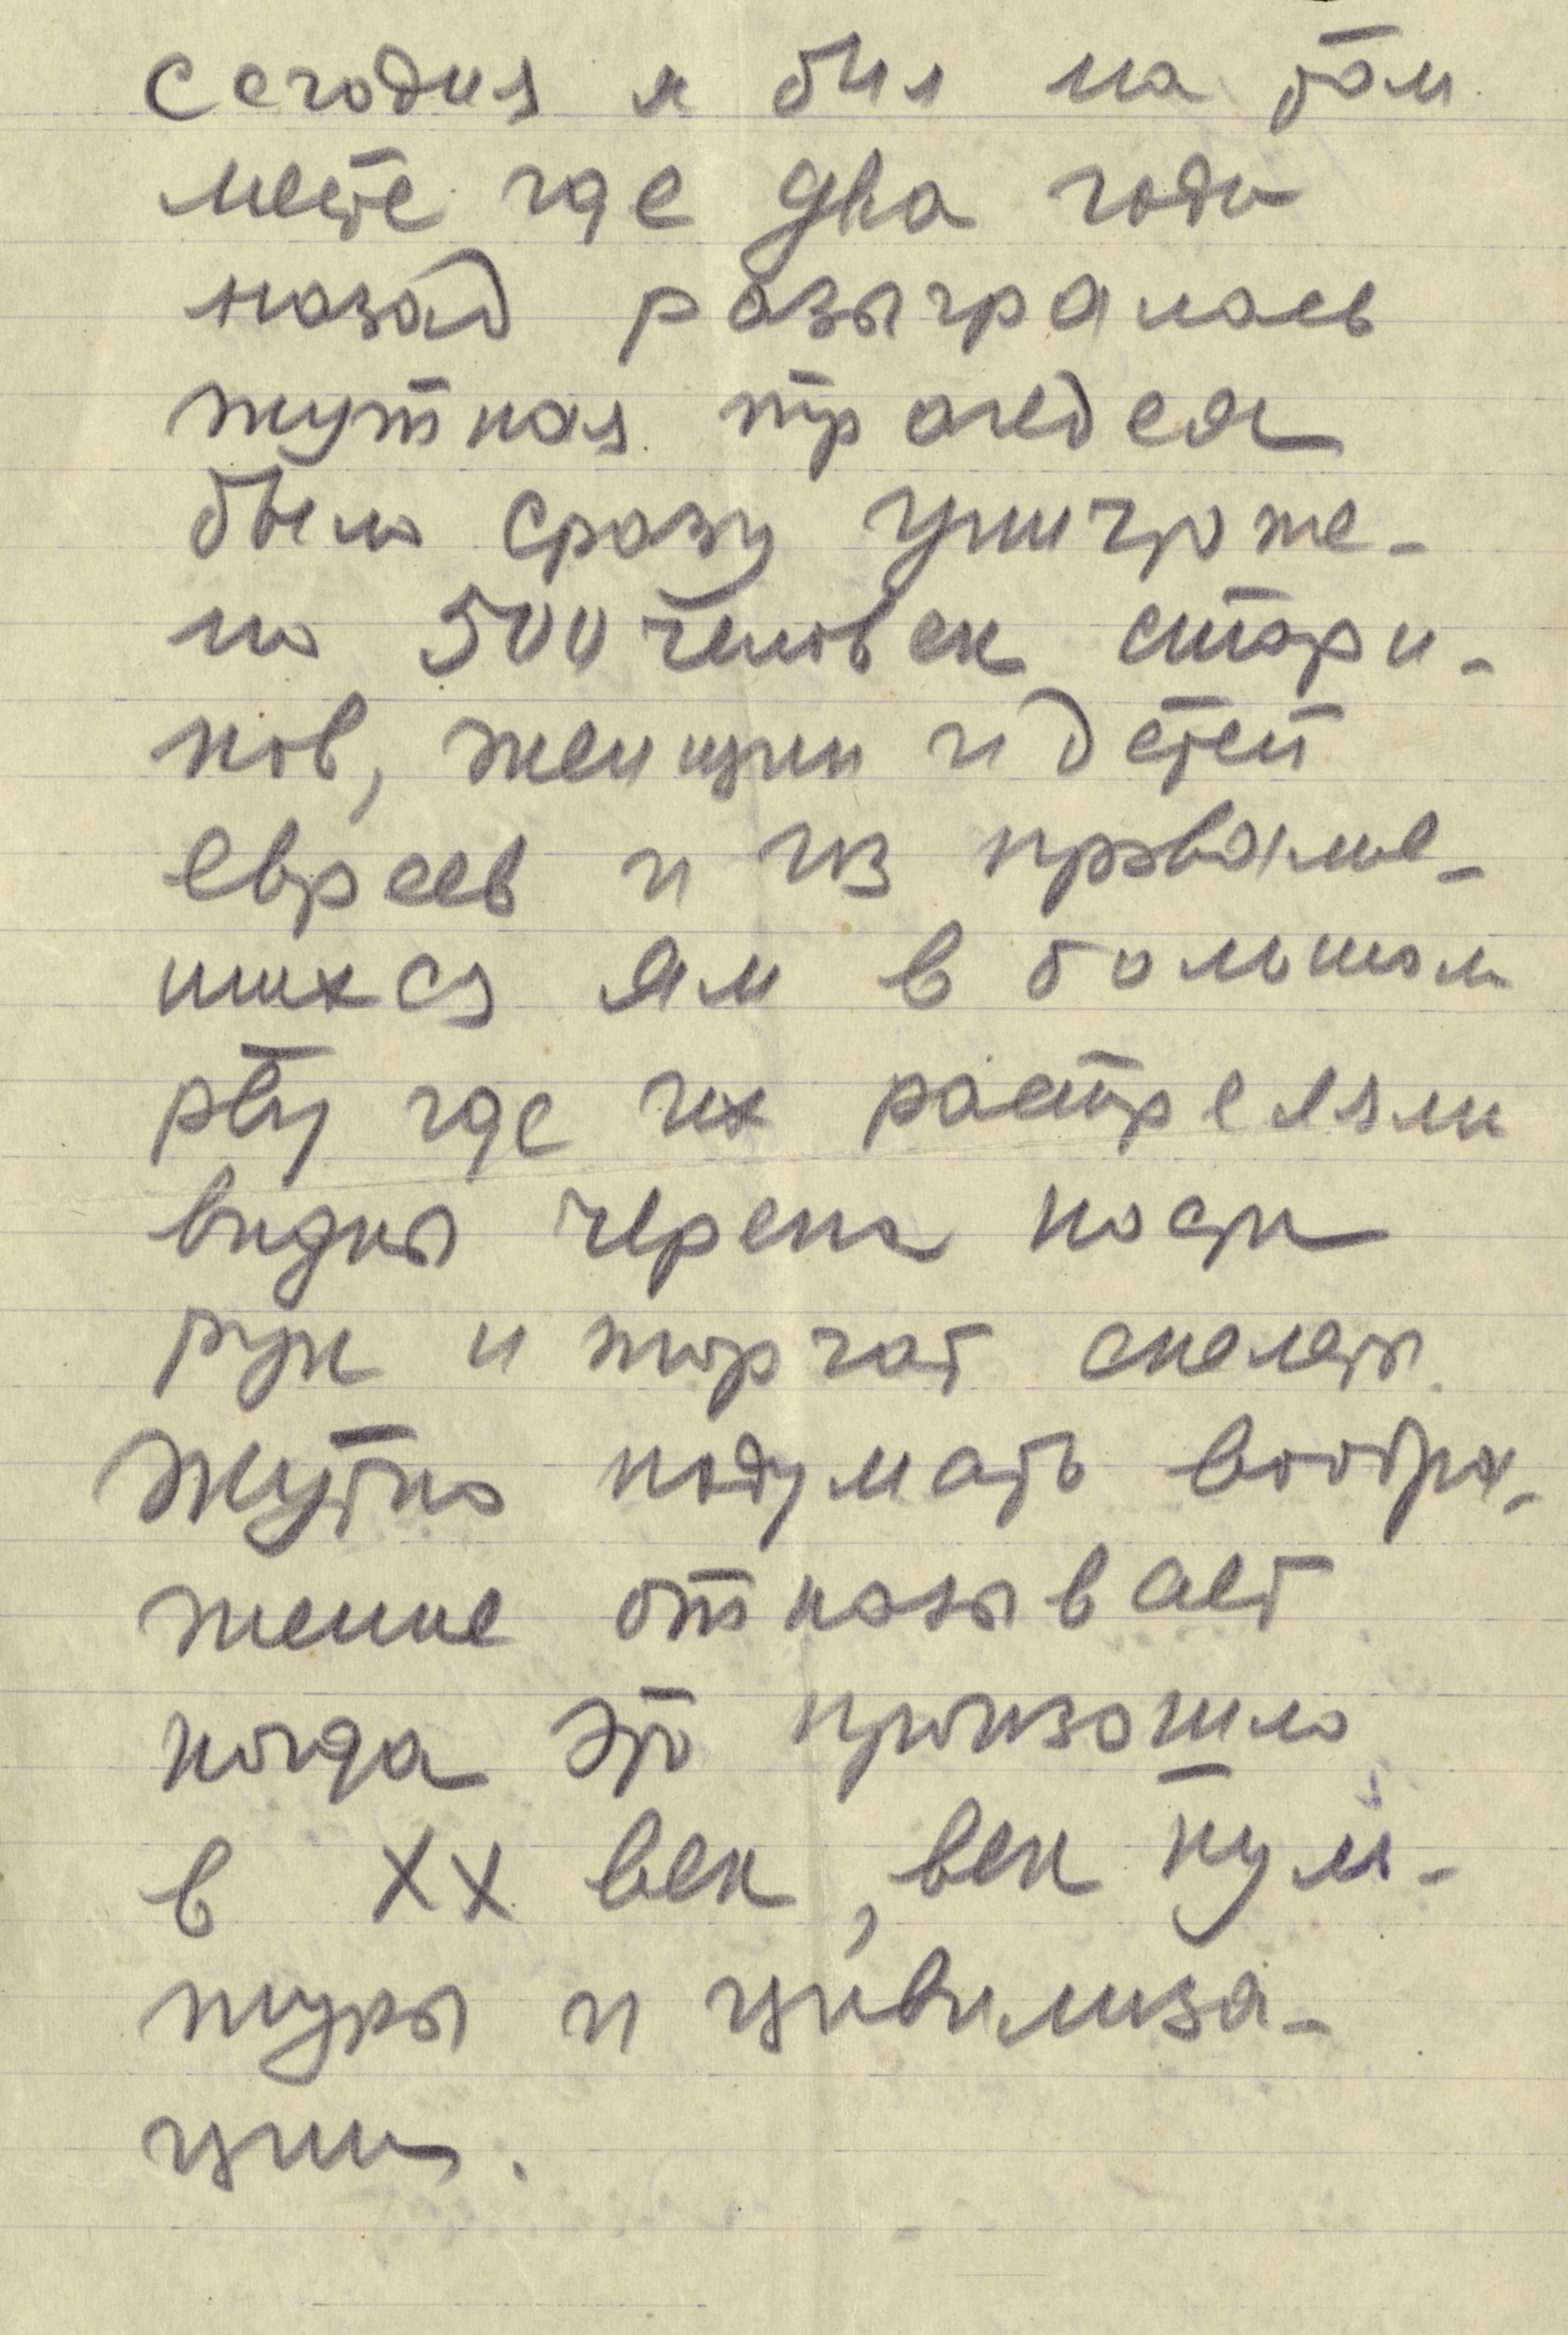 сегодня я был на том
месте где два года
назад разыгралась
жуткая трагедея
было сразу уничтоже-
но 500 человек стари-
ков, женщин и детей
евреев и из провалив-
шихся ям в большом
рву где их растреляли
видны черепа кости
рук и торчат скелеты
Жутко подумать вообра-
жение отказывает
когда это произошло
в XX век, век куль-
туры и цивилиза-
ции.